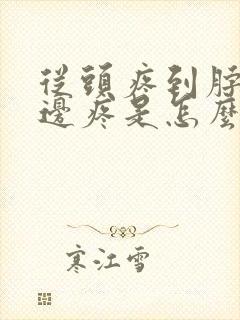 從頭疼到脖
邊疼是怎麼
寒江雪